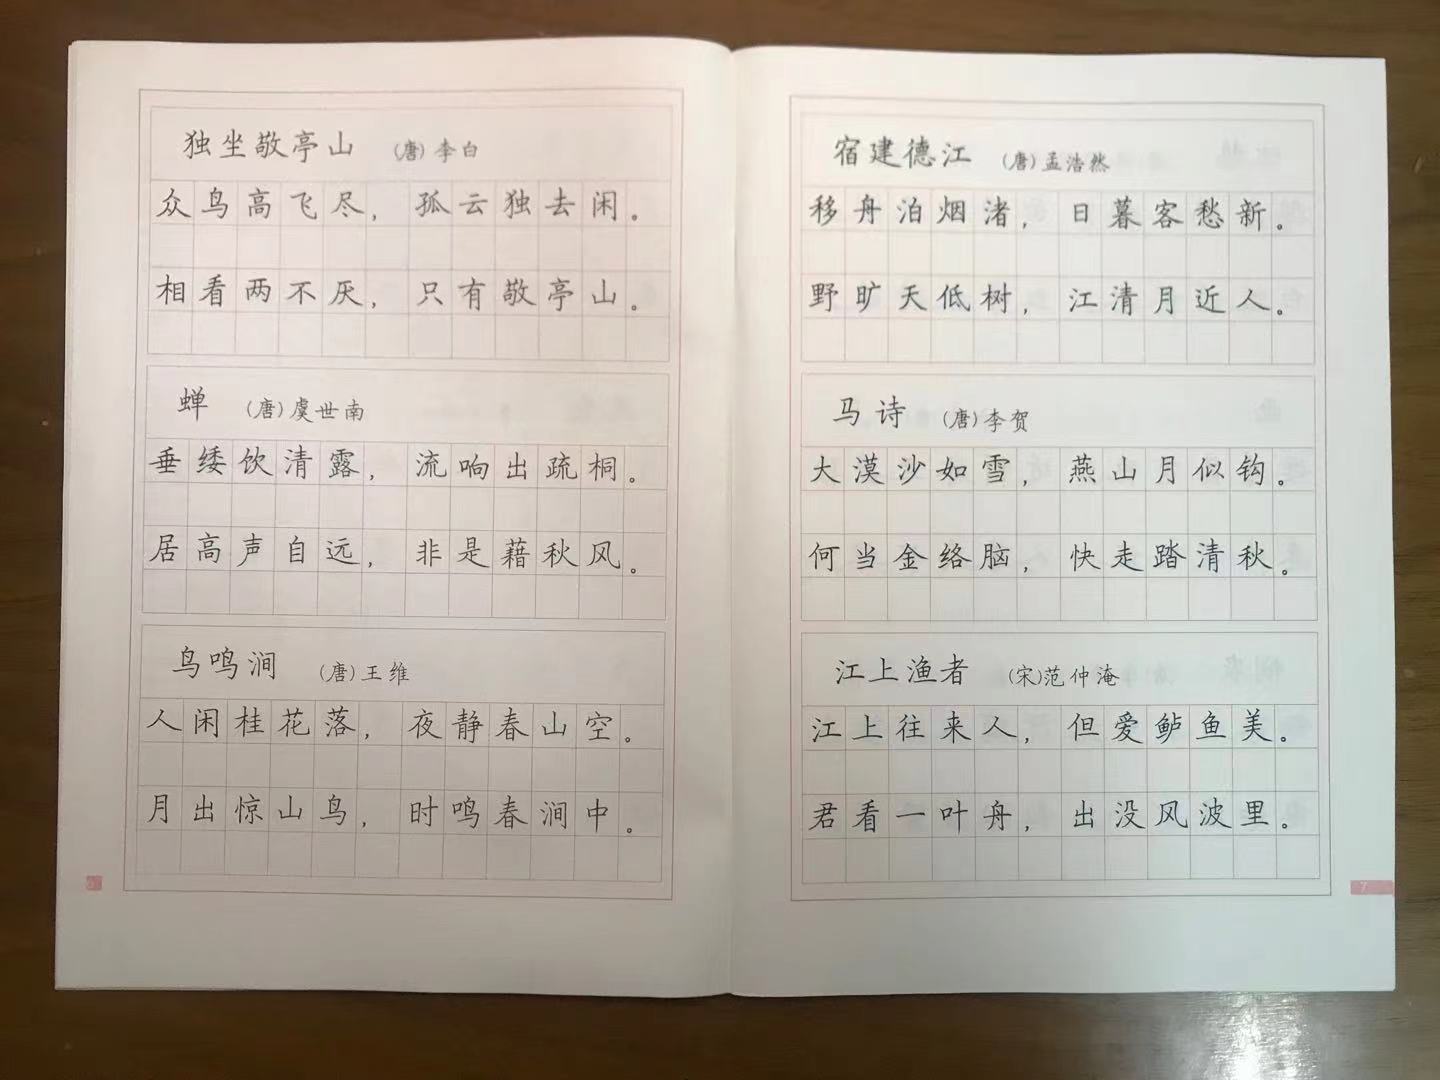 独坐敬亭山 (唐)李白
众鸟高飞尽，孤云独去闲。
相看两不厌，只有敬亭山。
蝉 (唐)虞世南
垂緌饮清露，流响出疏桐。
居高声自远，非是藉秋风。
鸟鸣涧 (唐)王维
人闲桂花落，夜静春山空。
月出惊山鸟，时鸣春涧中。
6
宿建德江 (唐)孟浩然
移舟泊烟渚，日暮客愁新。
野旷天低树，江清月近人。
马诗 (唐)李贺
大漠沙如雪，燕山月似钩。
何当金络脑，快走踏清秋。
江上渔者 (宋)范仲淹
江上往来人，但爱鲈鱼美。
君看一叶舟，出没风波里。
7